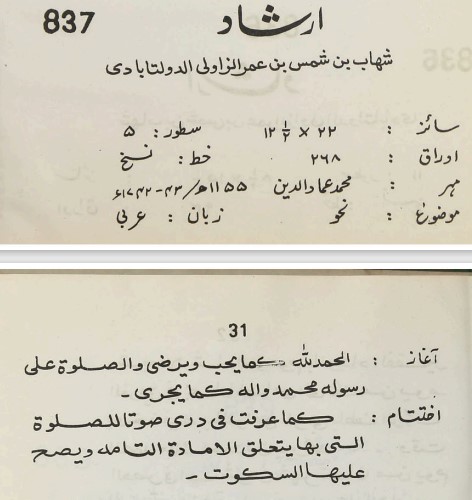 837
ارشاد
شهاب بن شمس بن عمر الزاولی الدولتابادی
سائز : ۲۲ × ۱۲ ½ سطور : ۵
اوراق : ۲۶۸ خط : نسخ
مہر : محمد عماد الدین ۱۱۵۵ھ/۴۳-۱۷۴۲ء
موضوع : نحو زبان : عربی
31
آغاز : الحمدلله کمایحب ویرضی والصلوة علی
رسوله محمد واله کما یجری -
اختتام : کما عرفت فی دری صوتا للصلوة
التی بها یتعلق الامادة التامه ویصح
علیها السکوت -